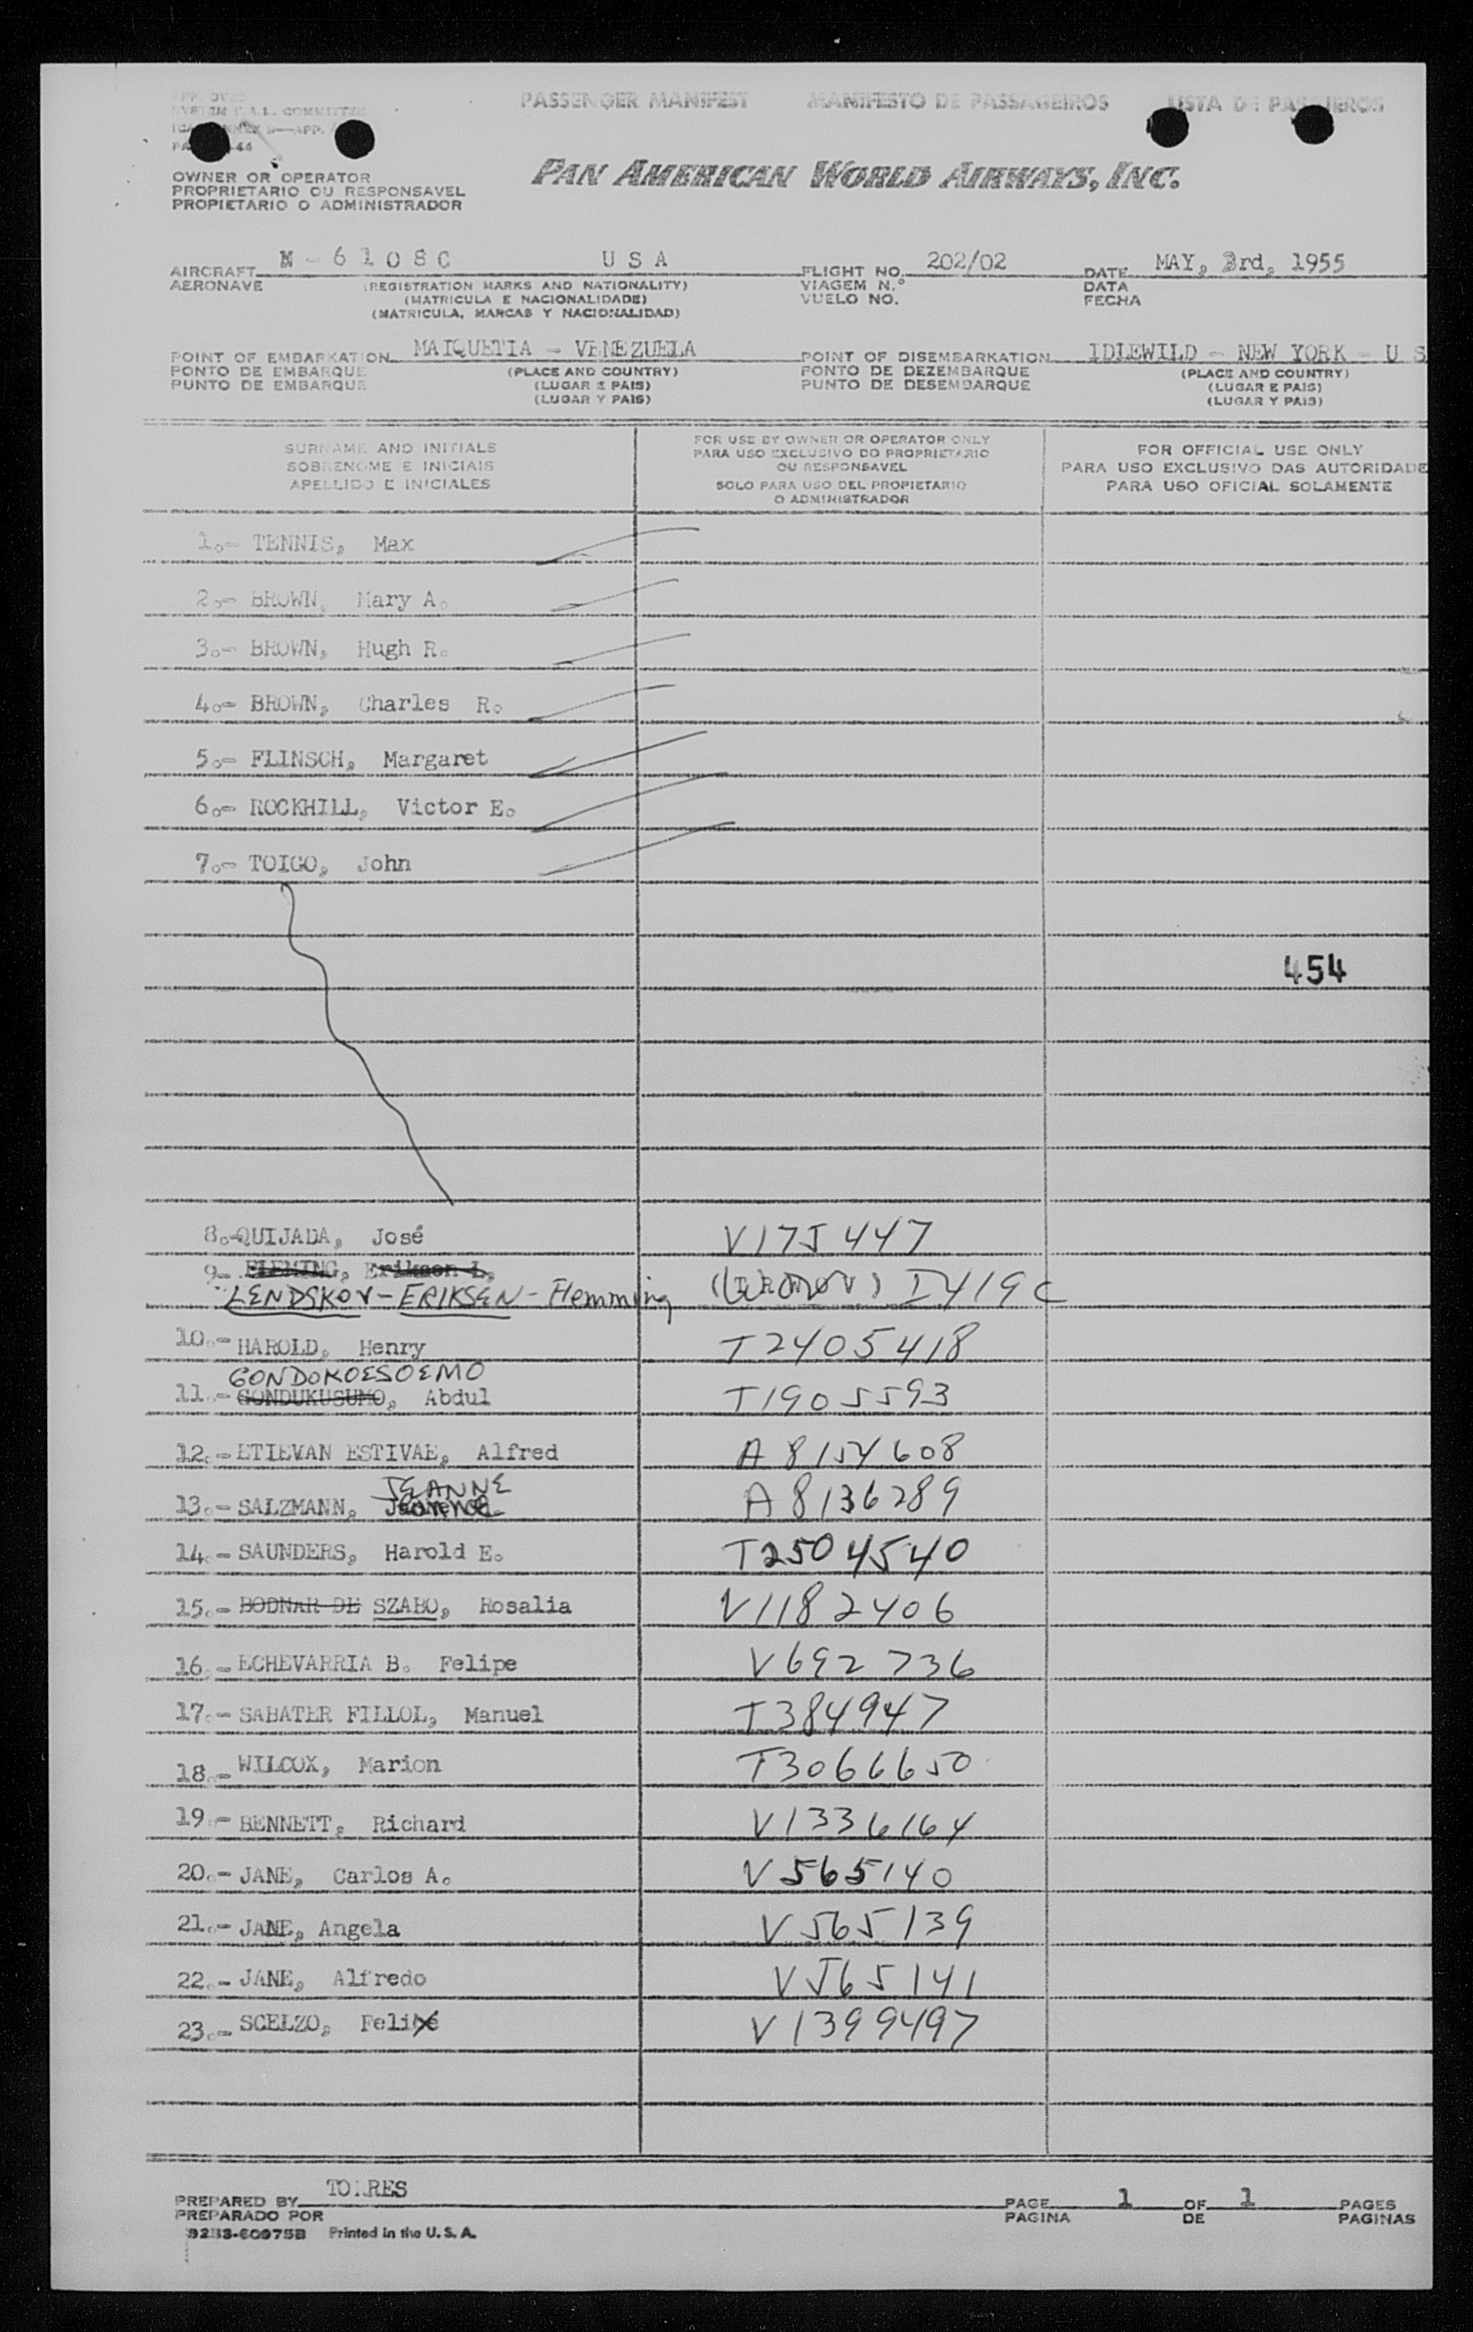 PASSENGER MANIFEST MANIFESTO DE PASSAGEIROS LISTA DE PASAJEROS
PAN AMERICAN WORLD AIRWAYS, INC.
OWNER OR OPERATOR
PROPRIETARIO OU RESPONSAVEL
PROPIETARIO O ADMINISTRADOR
AIRCRAFT N - 6 1 0 8 C U S A FLIGHT NO. 202/02 DATE MAY, 3rd, 1955
AERONAVE (REGISTRATION MARKS AND NATIONALITY) VIAGEM N.° DATA
(MATRICULA E NACIONALIDADE) VUELO NO. FECHA
(MATRICULA, MARCAS Y NACIONALIDAD)
POINT OF EMBARKATION MAIQUETIA - VENEZUELA POINT OF DISEMBARKATION IDLEWILD - NEW YORK - U S
PONTO DE EMBARQUE (PLACE AND COUNTRY) PONTO DE DEZEMBARQUE (PLACE AND COUNTRY)
PUNTO DE EMBARQUE (LUGAR E PAIS) PUNTO DE DESEMBARQUE (LUGAR E PAIS)
(LUGAR Y PAIS) (LUGAR Y PAIS)
SURNAME AND INITIALS
SOBRENOME E INICIAIS
APELLIDO E INICIALES
FOR USE BY OWNER OR OPERATOR ONLY
PARA USO EXCLUSIVO DO PROPRIETARIO
OU RESPONSAVEL
SOLO PARA USO DEL PROPIETARIO
O ADMINISTRADOR
FOR OFFICIAL USE ONLY
PARA USO EXCLUSIVO DAS AUTORIDADE
PARA USO OFICIAL SOLAMENTE
1.- TENNIS, Max
2.- BROWN, Mary A.
3.- BROWN, Hugh R.
4.- BROWN, Charles R.
5.- FLINSCH, Margaret
6.- ROCKHILL, Victor E.
7.- TOIGO, John
454
8.-QUIJADA, José V175447
9- FLEMING, Erikson L,
LENDSKOV-ERIKSEN-Flemming I419C
10.- HAROLD, Henry T2405418
GONDOKOESOEMO
11.- GONDUKUSUMO, Abdul T1905593
12.- ETIEVAN ESTIVAE, Alfred A8154608
JEANNE
13.- SALZMANN, A8136289
14.- SAUNDERS, Harold E. T2504540
15.- BODNAR DE SZABO, Rosalia V1182406
16.- ECHEVARRIA B. Felipe V692736
17.- SABATER FILLOL, Manuel T384947
18.- WILCOX, Marion T3066650
19.- BENNETT, Richard V1336164
20.- JANE, Carlos A. V565140
21.- JANE, Angela V565139
22.- JANE, Alfredo V565141
23.- SCELZO, V1399497
PREPARED BY TORRES PAGE 1 OF 1 PAGES
PREPARADO POR PAGINA DE PAGINAS
Printed in the U. S. A.